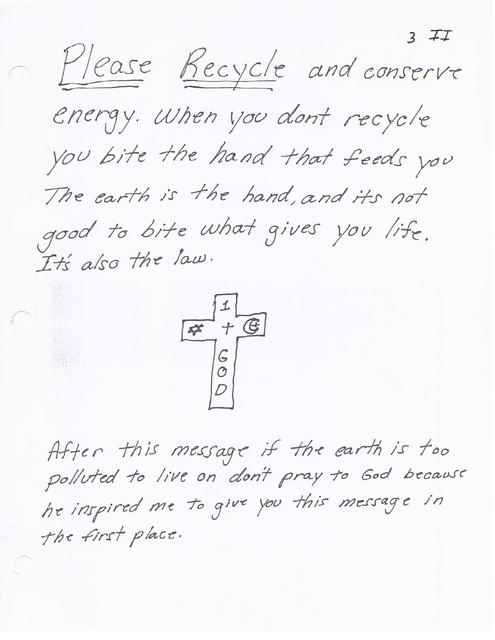 3 II
Please Recycle and conserve
energy. When you dont recycle
you bite the hand that feeds you
The earth is the hand, and its not
good to bite what gives you life.
It's also the law.
1
+
G
O
D
After this message if the earth is too
polluted to live on don't pray to God because
he inspired me to give you this message in
the first place.